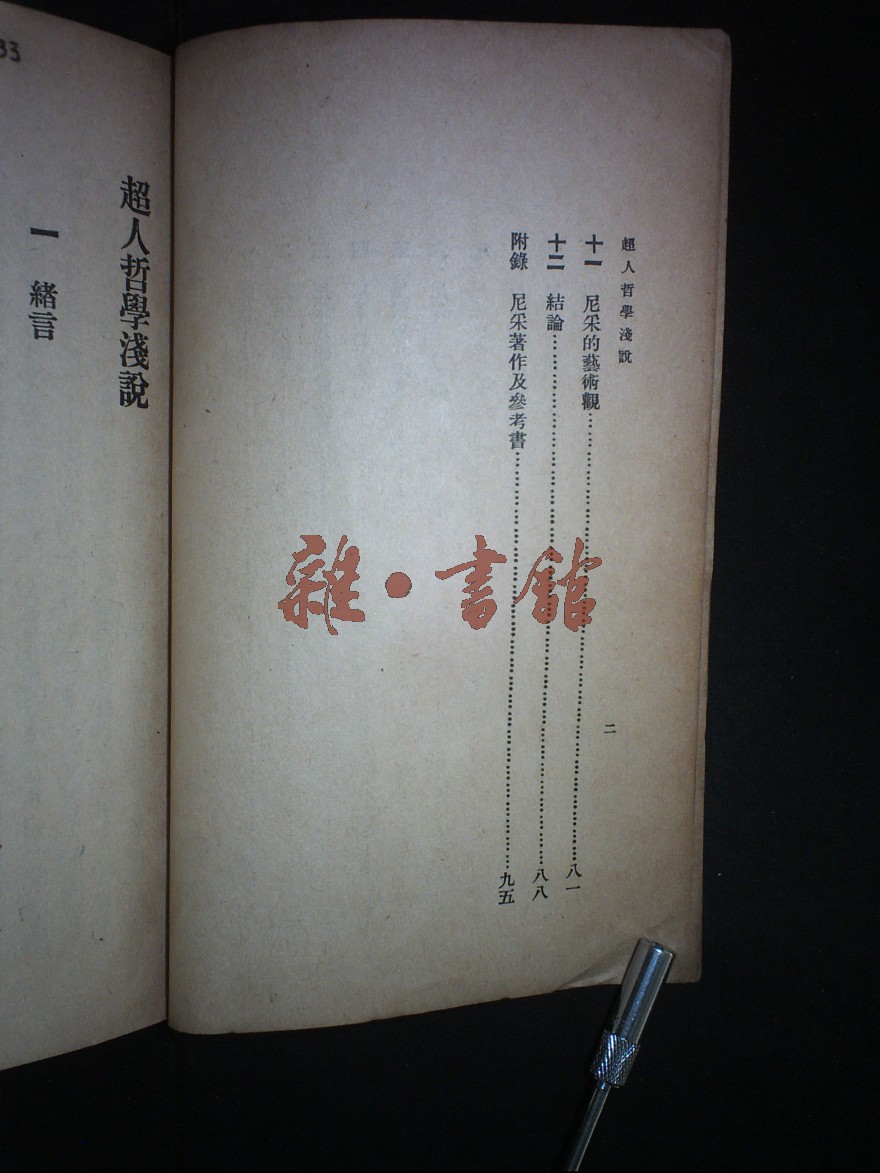 超人哲學淺說
十一　尼采的藝術觀……八一
十二　結論……八八
附錄　尼采著作及參考書……九五
二
超人哲學淺說
一　緒言
33
雜·書館